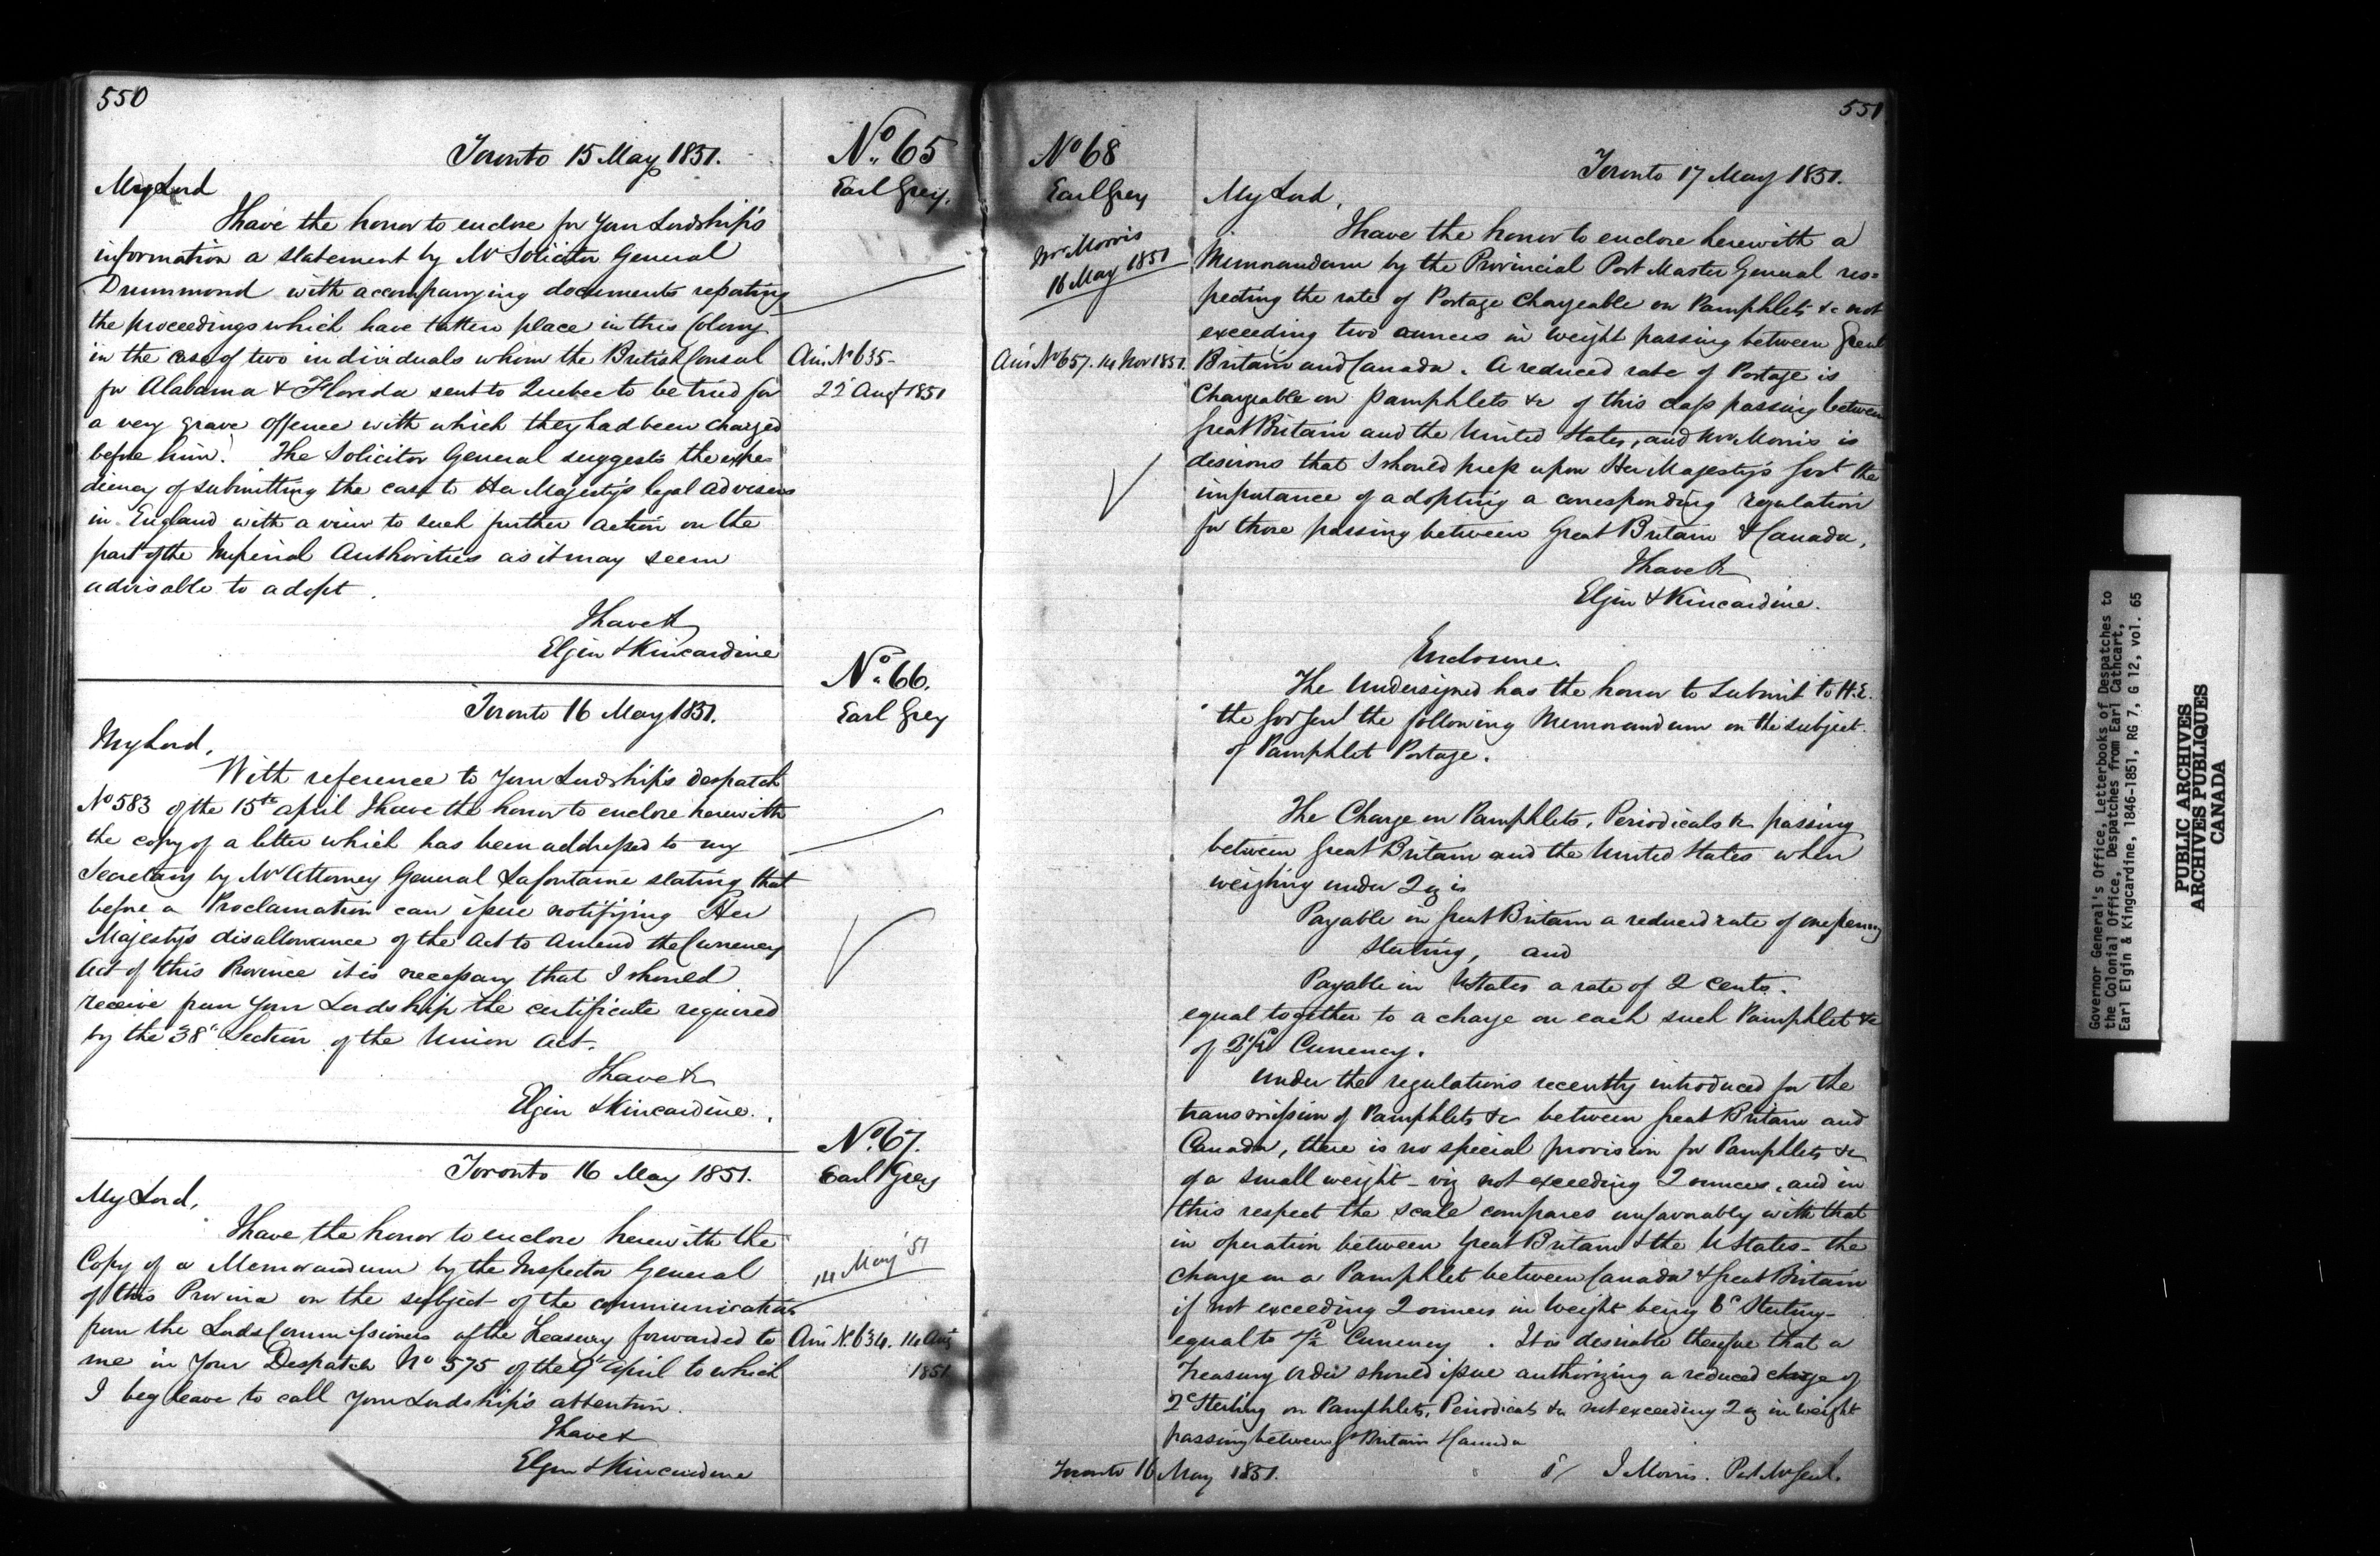 550
Toronto 15 May 1851.
No. 65
Earl Grey.
My Lord
I have the honor to enclose for Your Lordship's
information a statement by Mr Solicitor General
Drummond with accompanying documents repating
the proceedings which have taken place in this Colony
in the case of two individuals whom the British Consul
for Alabama & Florida sent to Quebec to be tried for
a very grave offence with which they had been charged
before him. The Solicitor General suggests the expe-
diency of submitting the case to Her Majesty's legal advisers
in England with a view to such further action on the
part of the Imperial Authorities as it may seem
advisable to adopt.
I have &
Elgin & Kincardine
Ans. No 635-
22 Augt 1851
No. 66.
Earl Grey
Toronto 16 May 1851.
My Lord,
With reference to Your Lordship's despatch
No 583 of the 15th April I have the honor to enclose herewith
the copy of a letter which has been addressed to my
Secretary by Mr Attorney General Lafontaine stating that
before a Proclamation can issue notifying Her
Majesty's disallowance of the Act to Amend the Currency
Act of this Province it is necessary that I should
receive from Your Lordship the certificate required
by the 38th Section of the Union Act.
I have &c
Elgin & Kincardine.
No. 67.
Earl Grey
Toronto 16 May 1851.
My Lord,
I have the honor to enclose herewith the
Copy of a Memorandum by the Inspector General
of this Province on the subject of the communication
from the Lords Commissioners of the Treasury forwarded to
me in Your Despatch No 575 of the April to which
I beg leave to call Your Lordship's attention.
I have &
Elgin & Kincardine
14 May '51
Ans. No 634. 14 Augt
1851
551
No 68
Earl Grey
Mr Morris
16 May 1851
Ans No 657. 14 Nov 1851.
Toronto 17 May 1851.
My Lord,
I have the honor to enclose herewith a
Memorandum by the Provincial Post Master General res=
pecting the rate of Postage Chargeable on Pamphlets &c not
exceeding two ounces in weight passing between Great
Britain and Canada. A reduced rate of Postage is
Chargeable on pamphlets &c of this class passing between
Great Britain and the United States, and Mr Morris is
desirous that I should press upon Her Majesty's Govt the
importance of adopting a corresponding regulation
for those passing between Great Britain & Canada.
I have &c
Elgin & Kincardine.
Enclosure.
The Undersigned has the honor to submit to H.E.
the Gov Genl the following Memorandum on the subject
of Pamphlet Postage.
The Charge on Pamphlets, Periodicals &c passing
between Great Britain and the United States when
weighing under 2 oz is
Payable in Great Britain a reduced rate of one penny
Sterling, and
Payable in UStates a rate of 2 cents.
equal together to a charge on each such Pamphlet &c
of 2½d Currency.
Under the regulations recently introduced for the
transmission of Pamphlets &c between Great Britain and
Canada, there is no special provision for Pamphlets &c
of a small weight - viz not exceeding 2 ounces, and in
this respect the scale compares unfavorably with that
in operation between Great Britain & the UStates - the
charge on a Pamphlet between Canada & Great Britain
if not exceeding 2 ounces in weight being 6d Sterling -
equal to 7½d Currency. It is desirable therefore that a
Treasury Order should issue authorizing a reduced charge of
2d Sterling on Pamphlets, Periodicals &c not exceeding 2 oz in weight
passing between Gt Britain & Canada
Toronto 16 May 1851.
s/ J Morris. Post Mr Genl.
Governor General's Office, Letterbooks of Despatches to
the Colonial Office, Despatches from Earl Cathcart,
Earl Elgin & Kingcardine, 1846-1851, RG 7, G 12, vol. 65
PUBLIC ARCHIVES
ARCHIVES PUBLIQUES
CANADA